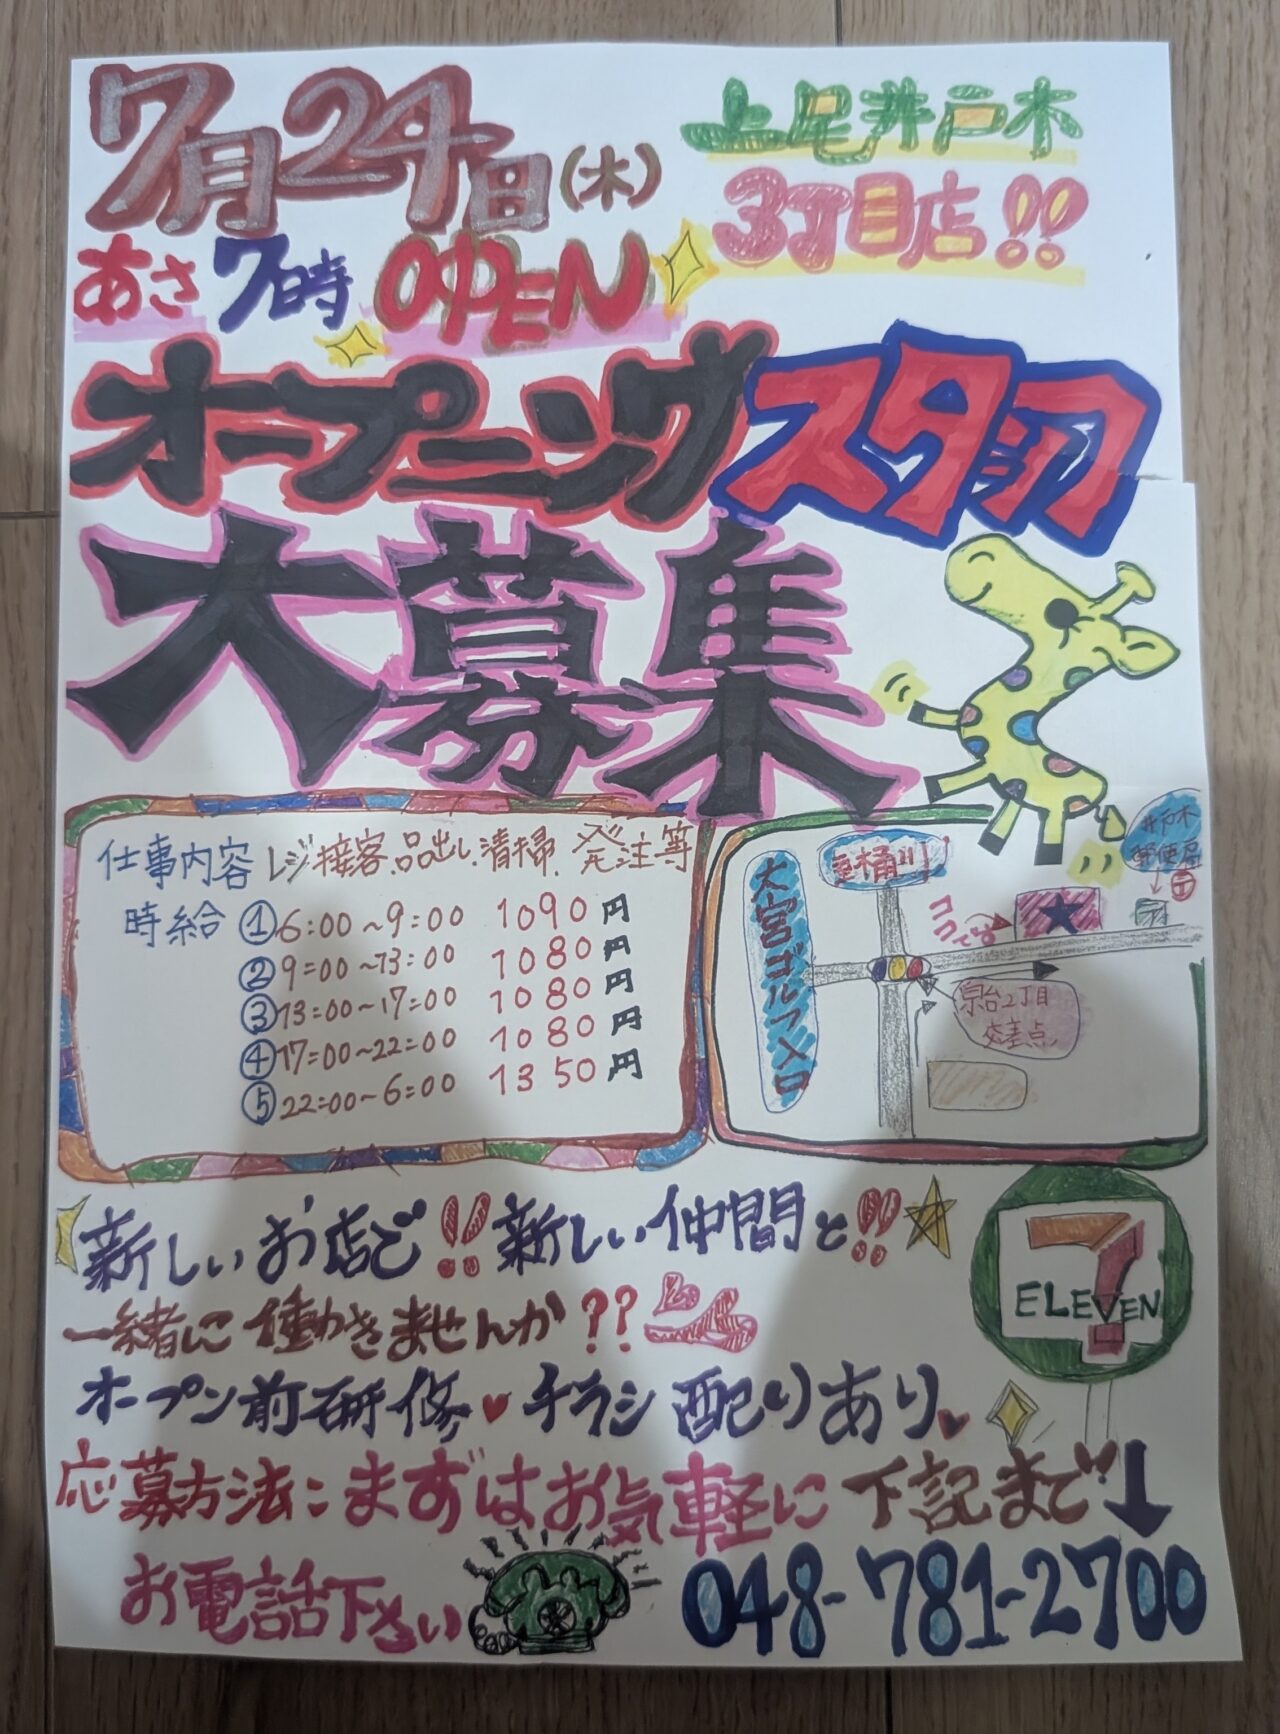 7月24日(木)
上尾井戸木
3丁目店!!
あさ7時 OPEN
オープニングスタッフ
大募集
仕事内容 レジ接客.品出し.清掃.発注等
時給 ①6:00~9:00 1090円
②9:00~13:00 1080円
③13:00~17:00 1080円
④17:00~22:00 1080円
⑤22:00~6:00 1350円
大宮ゴルフ入口
至桶川
ココです
井戸木
郵便局
〒
2丁目
交差点
新しいお店で!!新しい仲間と!!
一緒に働きませんか??
7
ELEVEN
オープン前研修♥チラシ配りあり♥
応募方法:まずはお気軽に下記まで↓
お電話下さい
048-781-2700